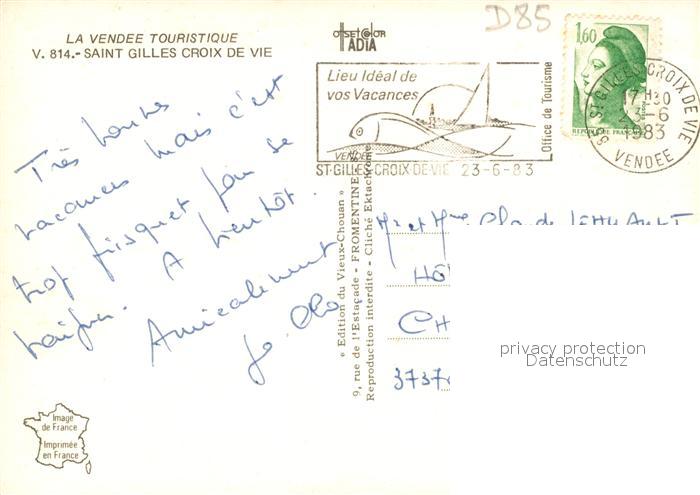 LA VENDEE TOURISTIQUE
V. 814.- SAINT GILLES CROIX DE VIE
offset color
ADIA
D85
1,60
REPUBLIQUE FRANÇAISE
Lieu Idéal de
vos Vacances
Office de Tourisme
VENDEE
ST-GILLES-CROIX-DE-VIE 23-6-83
ST GILLES CROIX DE VIE
17 H 30
23-6
1983
VENDEE
Très bonnes
vacances mais c'est
trop frisquet pour se
baigner. A bientôt.
Amicalement
« Edition du Vieux-Chouan »
9, rue de l'Estaçade - FROMENTINE
Reproduction Interdite - Cliché Ektachrome
Mr et Mme
HÔ
CH
3737
privacy protection
Datenschutz
Image
de France
Imprimée
en France